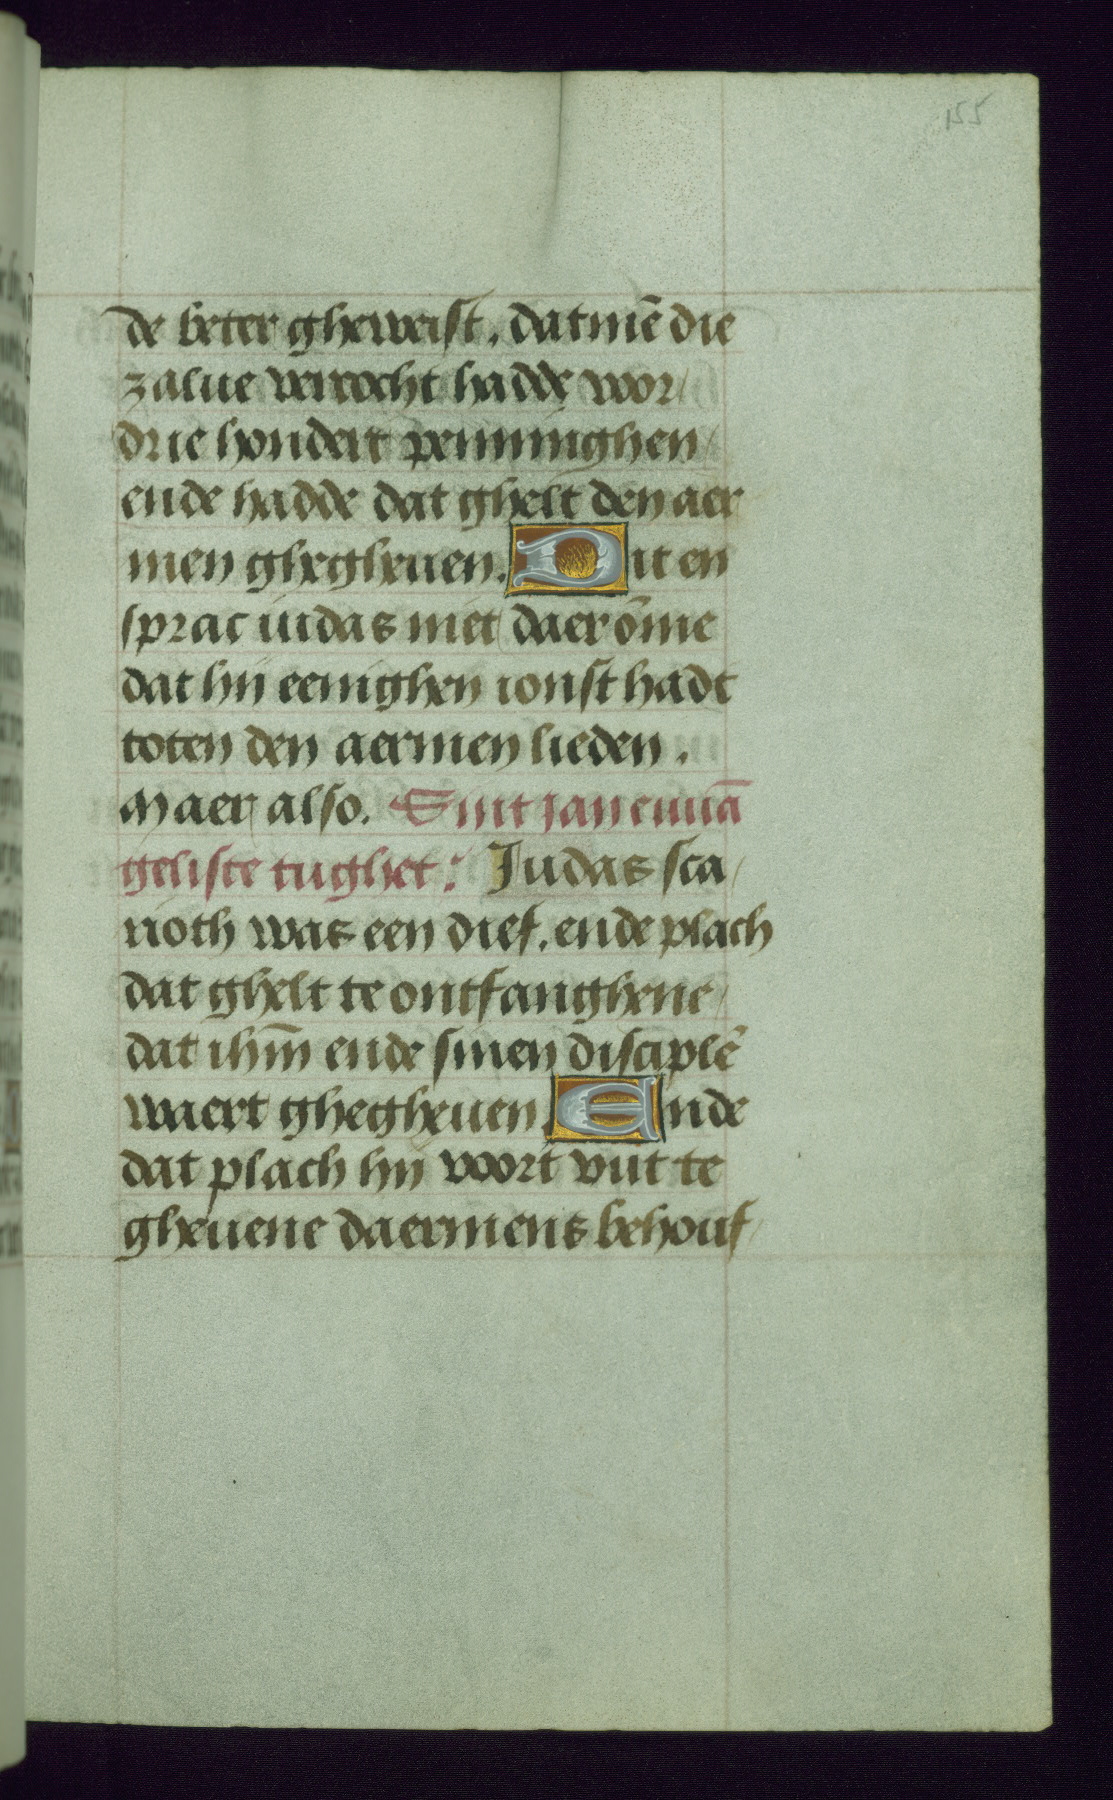 155
de beter gheweist. datmē die
zalue vercocht hadde voor/
drie hondert penninghen/
ende hadde dat ghelt den aer
men ghegheuen. Dit en
sprac iudas niet daer ōme
dat hij eenighen ionst hadt
toten den aermen lieden.
Maer also. Sint Jan euuā
geliste tughet: Judas sca/
rioth was een dief. ende plach
dat ghelt te ontfanghene/
dat ihm̄ ende sinen disciplē
waert ghegheuen. Ende
dat plach hij voort vut te
gheuene daermens behouf/